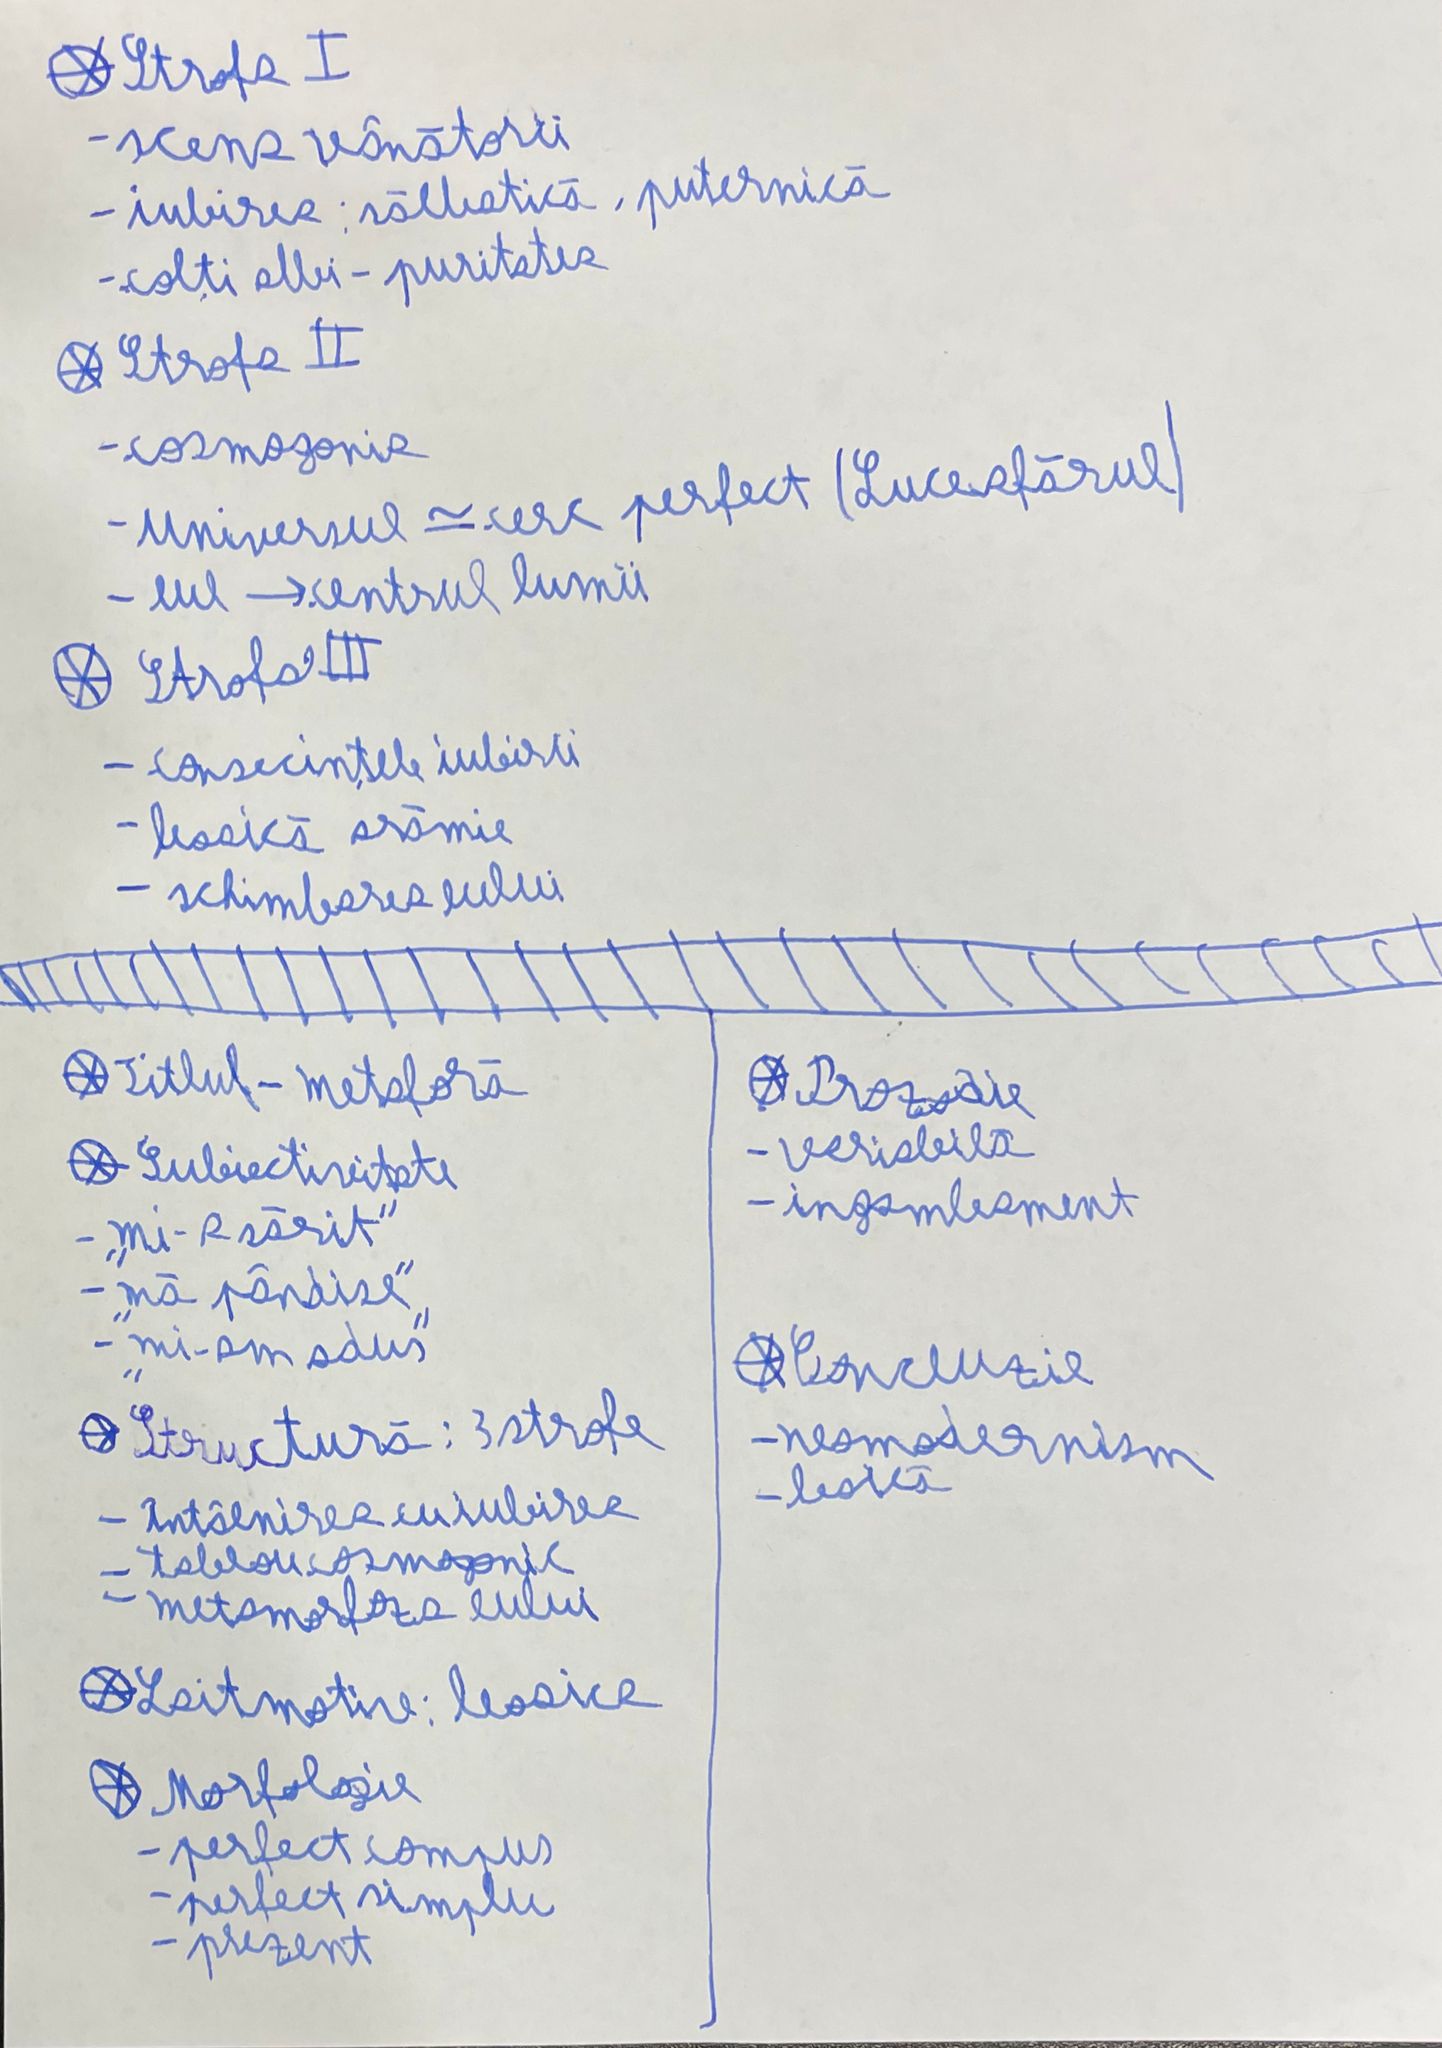 Strofa I
- scena vânătorii
- iubirea: sălbatică, puternică
- colți albi - puritatea
Strofa II
- cosmogonia
- Universul ≃ cerc perfect (Luceafărul)
- eul → centrul lumii
Strofa III
- consecințele iubirii
- leoaică arămie
- schimbarea eului
Titlul - metaforă
Subiectivitate
- „mi-a sărit”
- „mă pândise”
- „mi-am adus”
Structură: 3 strofe
- întâlnirea cu iubirea
- tablou cosmogonic
- metamorfoza eului
Laitmotive: leoaica
Morfologie
- perfect compus
- perfect simplu
- prezent
Prozodie
- variabilă
- ingambament
Concluzie
- neomodernism